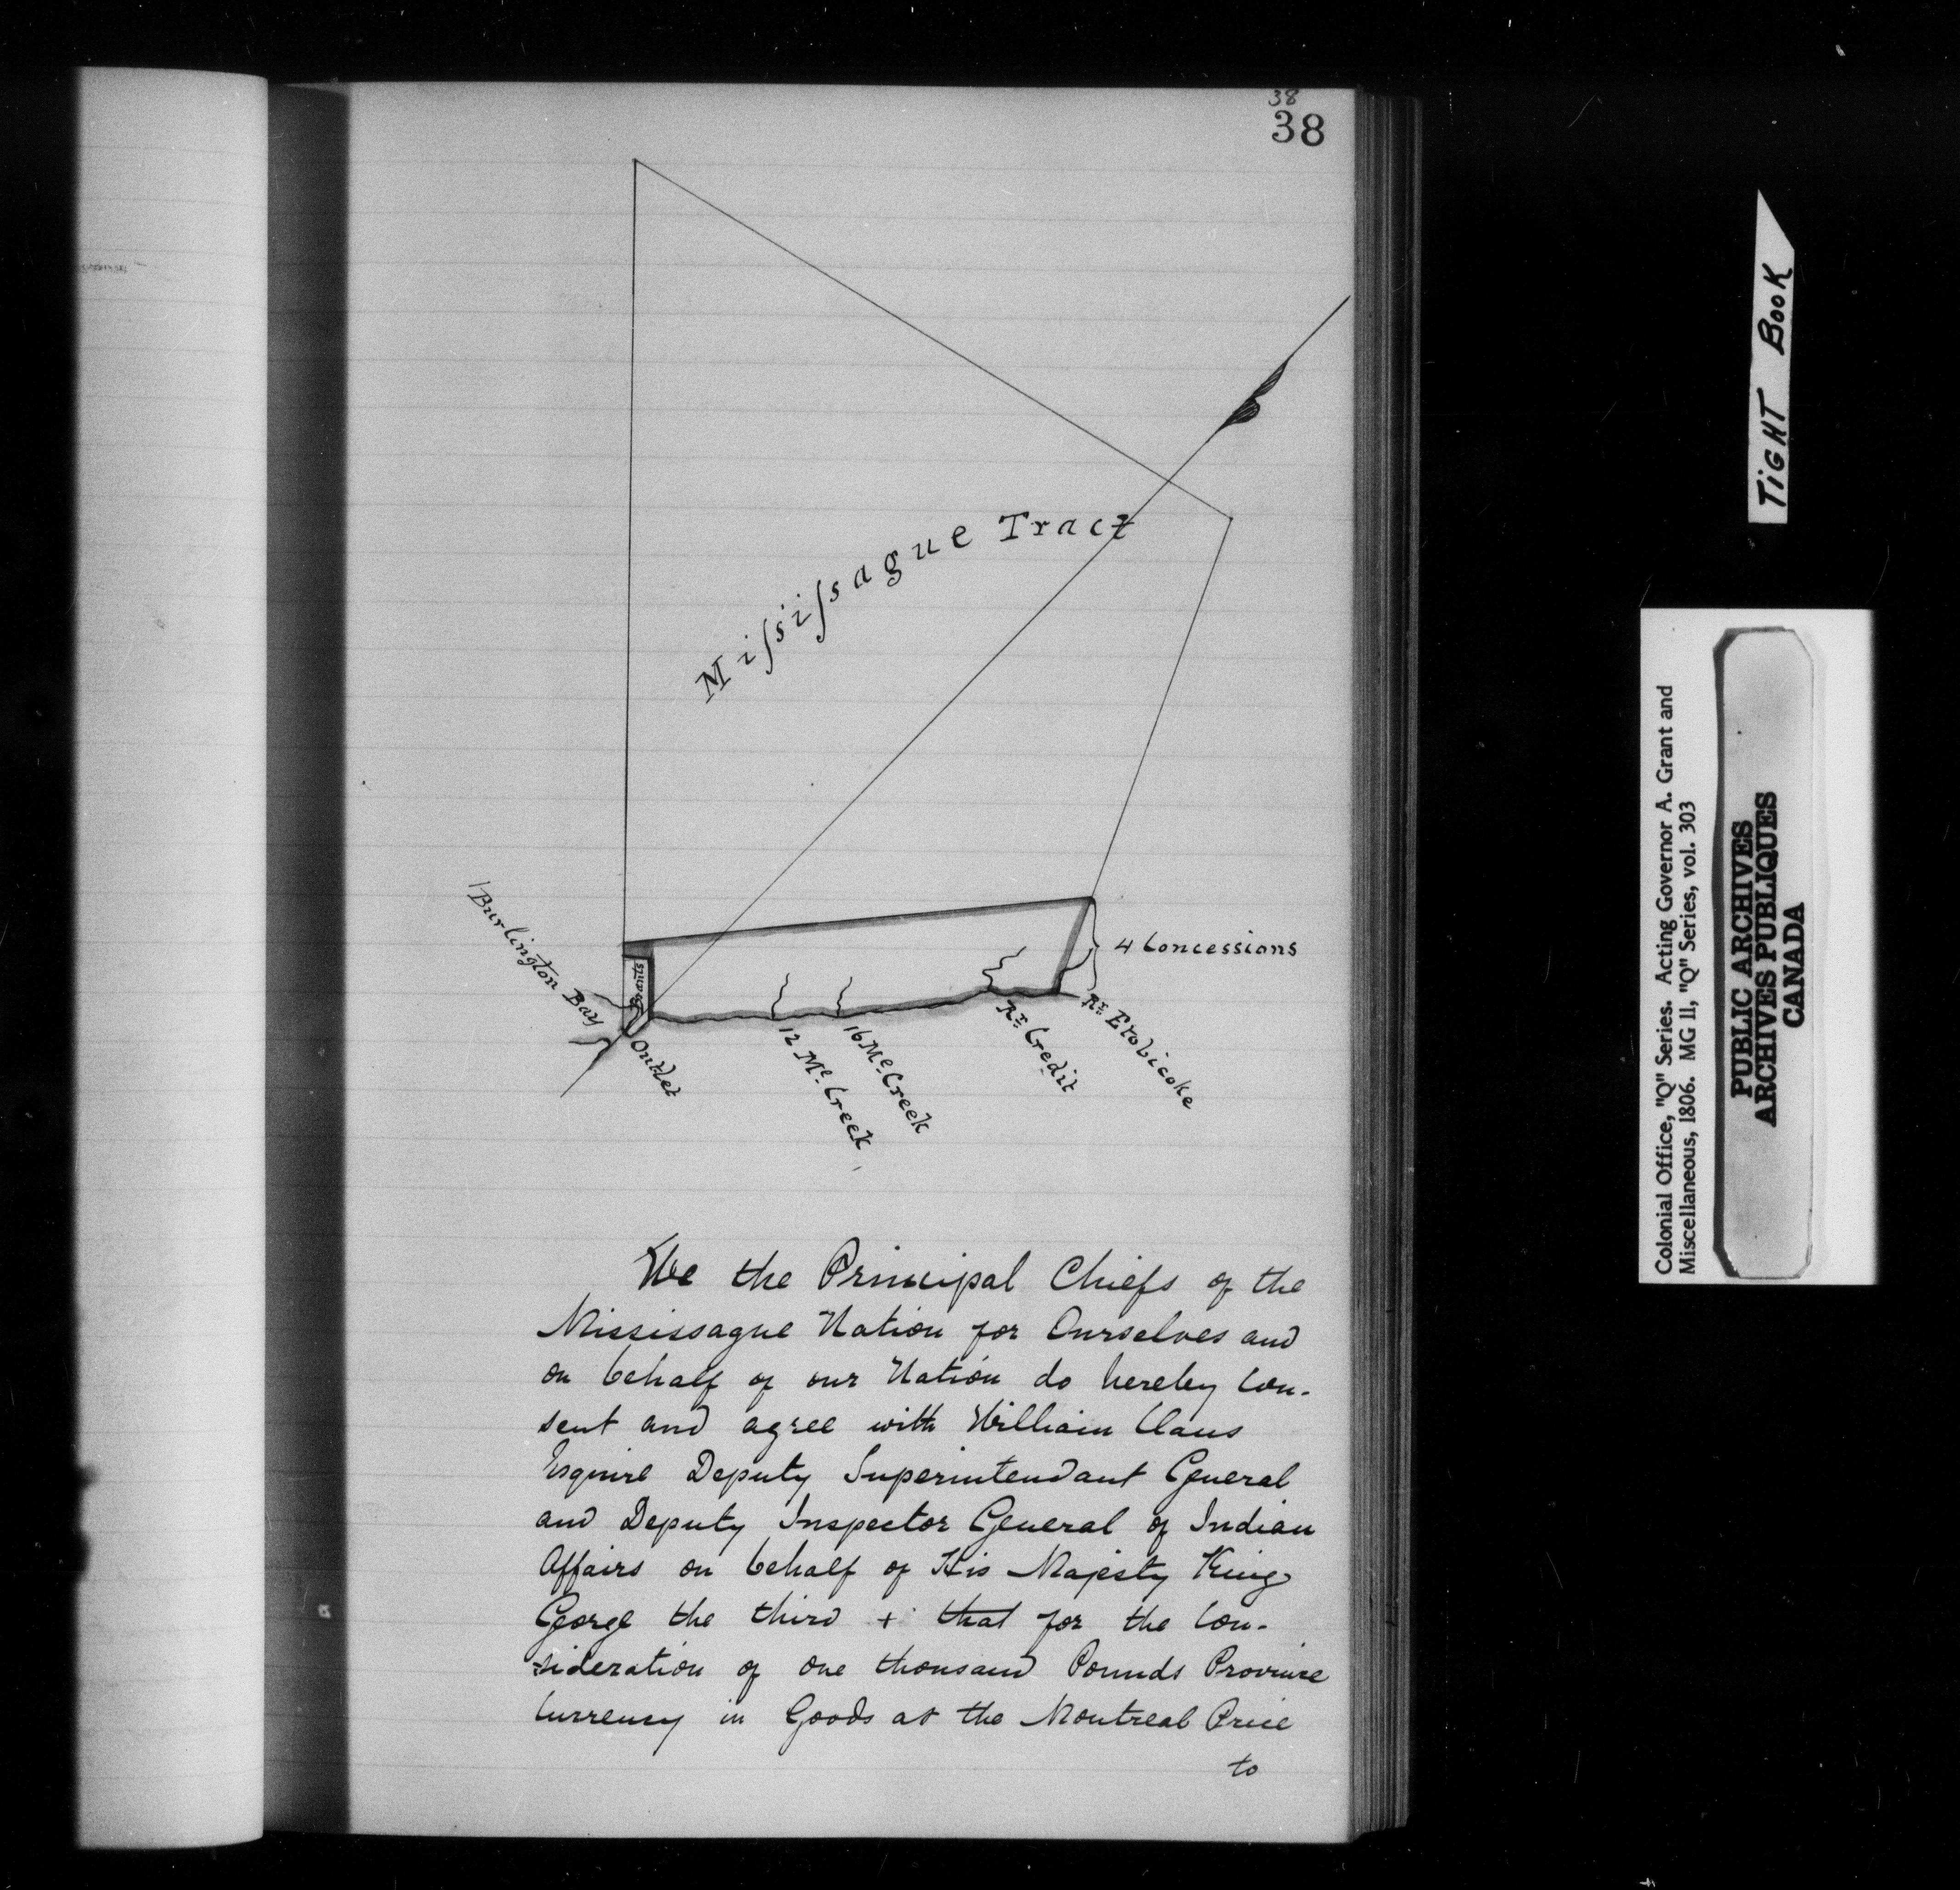 38
38
Mississague Tract
Burlington Bay
Brants
Outlet
12 Me. Creek
16 Me. Creek
Rr. Credit
Rr. Etobicoke
4 Concessions
We the Principal Chiefs of the
Mississague Nation for Ourselves and
on behalf of our Nation do hereby Con-
sent and agree with William Claus
Esquire Deputy Superintendant General
and Deputy Inspector General of Indian
Affairs on behalf of His Majesty King
George the third + that for the Con-
sideration of one thousand Pounds Province
Currency in Goods at the Montreal Price
to
TIGHT BOOK
Colonial Office, "Q" Series. Acting Governor A. Grant and
Miscellaneous, 1806. MG 11, "Q" Series, vol. 303
PUBLIC ARCHIVES
ARCHIVES PUBLIQUES
CANADA